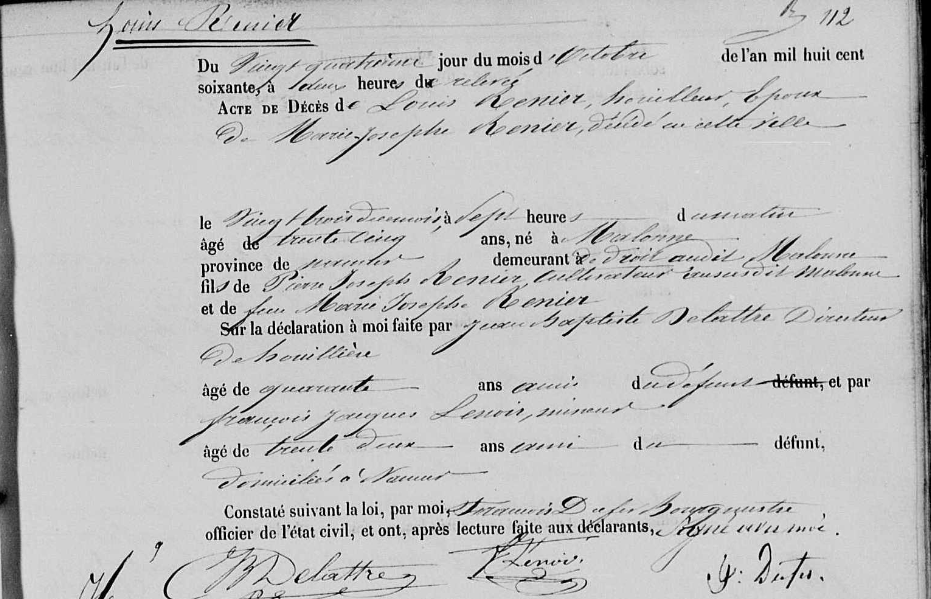 Louis Renier
112
Du Vingt quatrième jour du mois d'Octobre de l'an mil huit cent
soixante, à deux heures de relevé
ACTE DE DÉCÈS de Louis Renier, houilleur, Epoux
de Marie-Josephe Renier, décédé en cette ville
le Vingt trois du mois, à Sept heures du matin
âgé de trente cinq ans, né à Malonne
province de namur demeurant de droit audit Malonne
fils de Pierre Joseph Renier, cultivateur au susdit Malonne
et de feue Marie Josephe Renier
Sur la déclaration à moi faite par Jean Baptiste Delattre Directeur
de houillière
âgé de quarante ans amis du défunt défunt, et par
françois Jacques Lenoir, mineur
âgé de trente deux ans ami du défunt,
domiciliés à Namur
Constaté suivant la loi, par moi, François Dufer Bourgmestre
officier de l'état civil, et ont, après lecture faite aux déclarants, Signé avec moi.
JB Delattre
F Lenoir
F. Dufer.